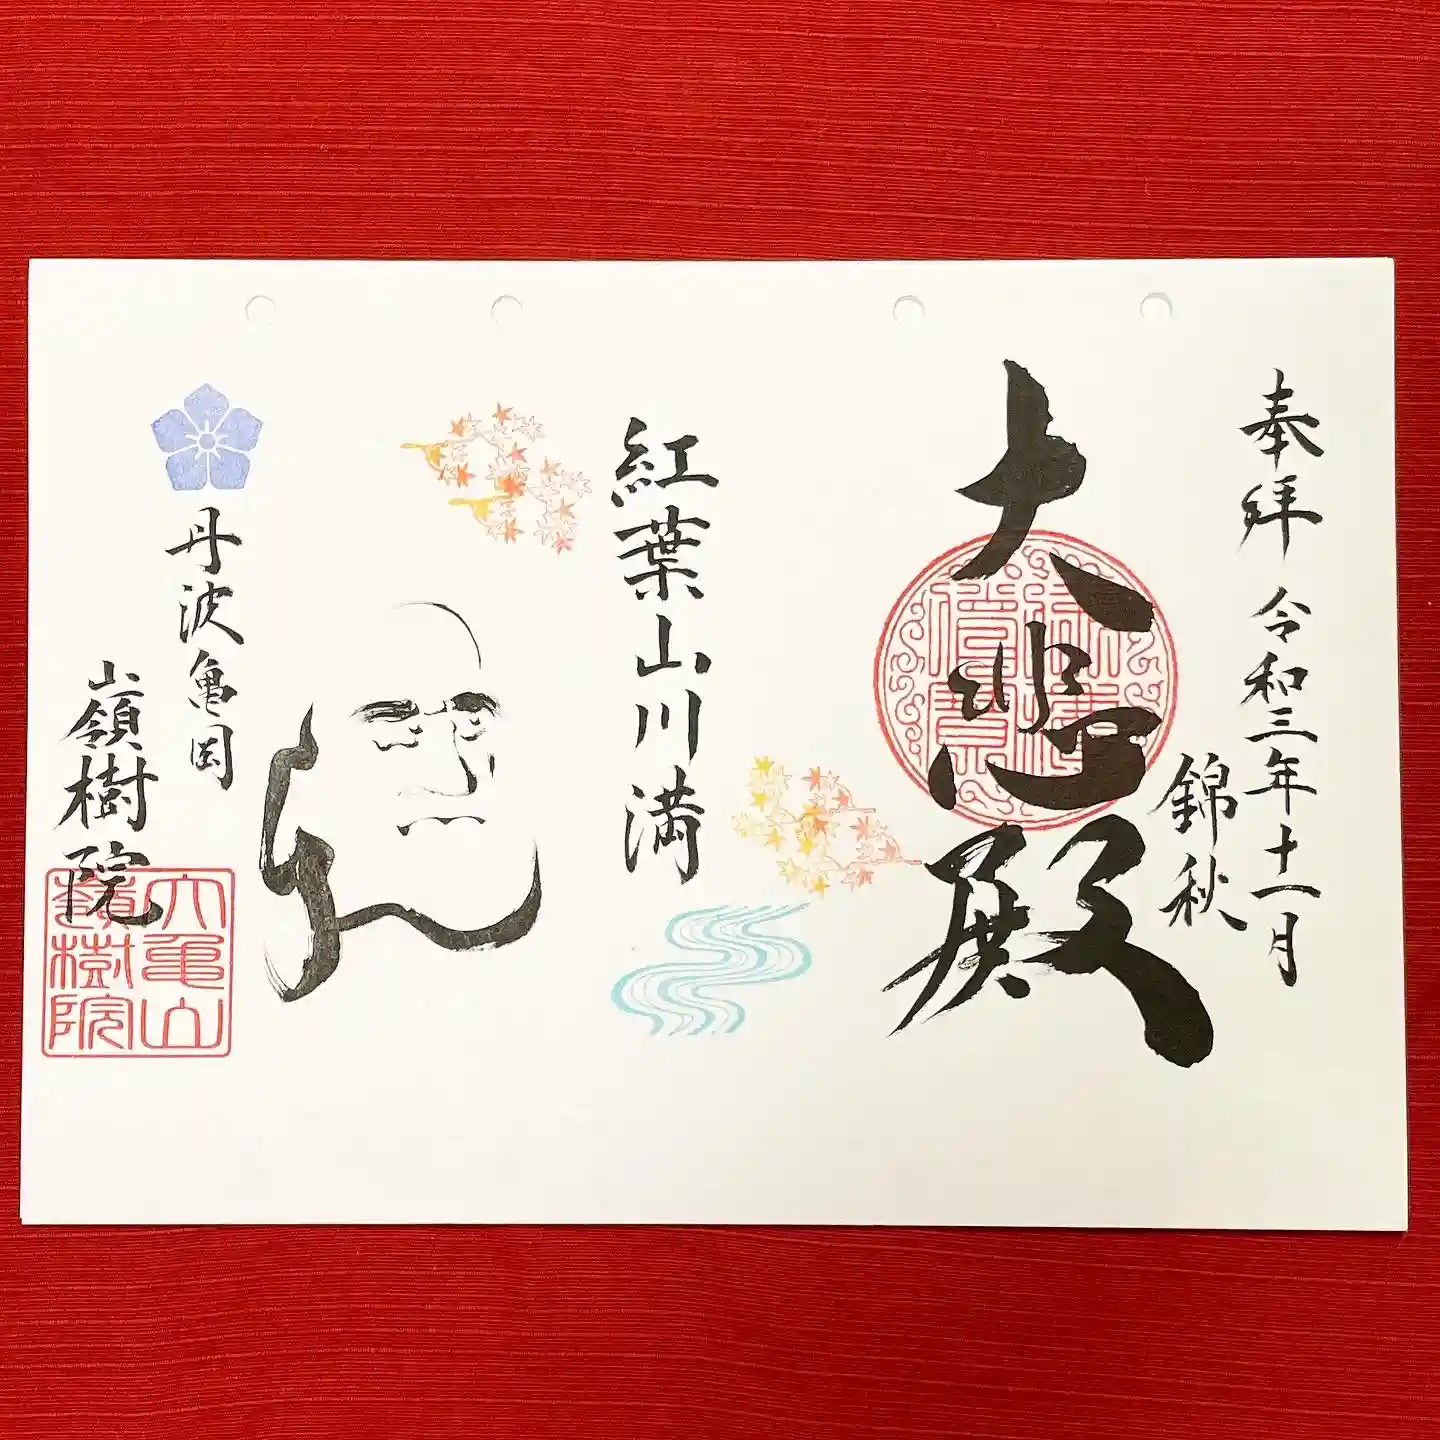 奉拝 令和三年十一月
錦秋
大悲殿
紅葉山川満
丹波亀岡
嶺樹院
大亀山
嶺樹院